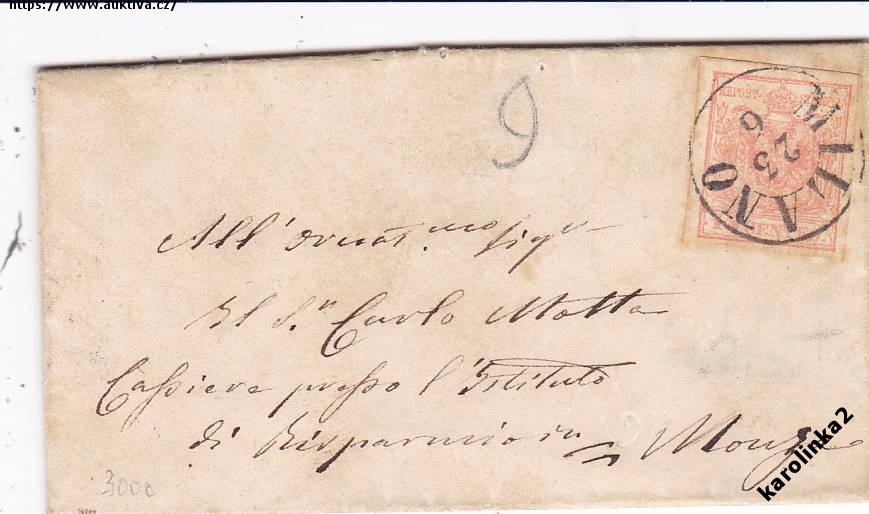 https://www.auktiva.cz/
9
KKPOST-
MILANO
23
6
All'Ornat.mo Sigr
Il Sr. Carlo Motta
Cassiere presso l'Istituto
di Risparmio in Monza
3000
karolinka2